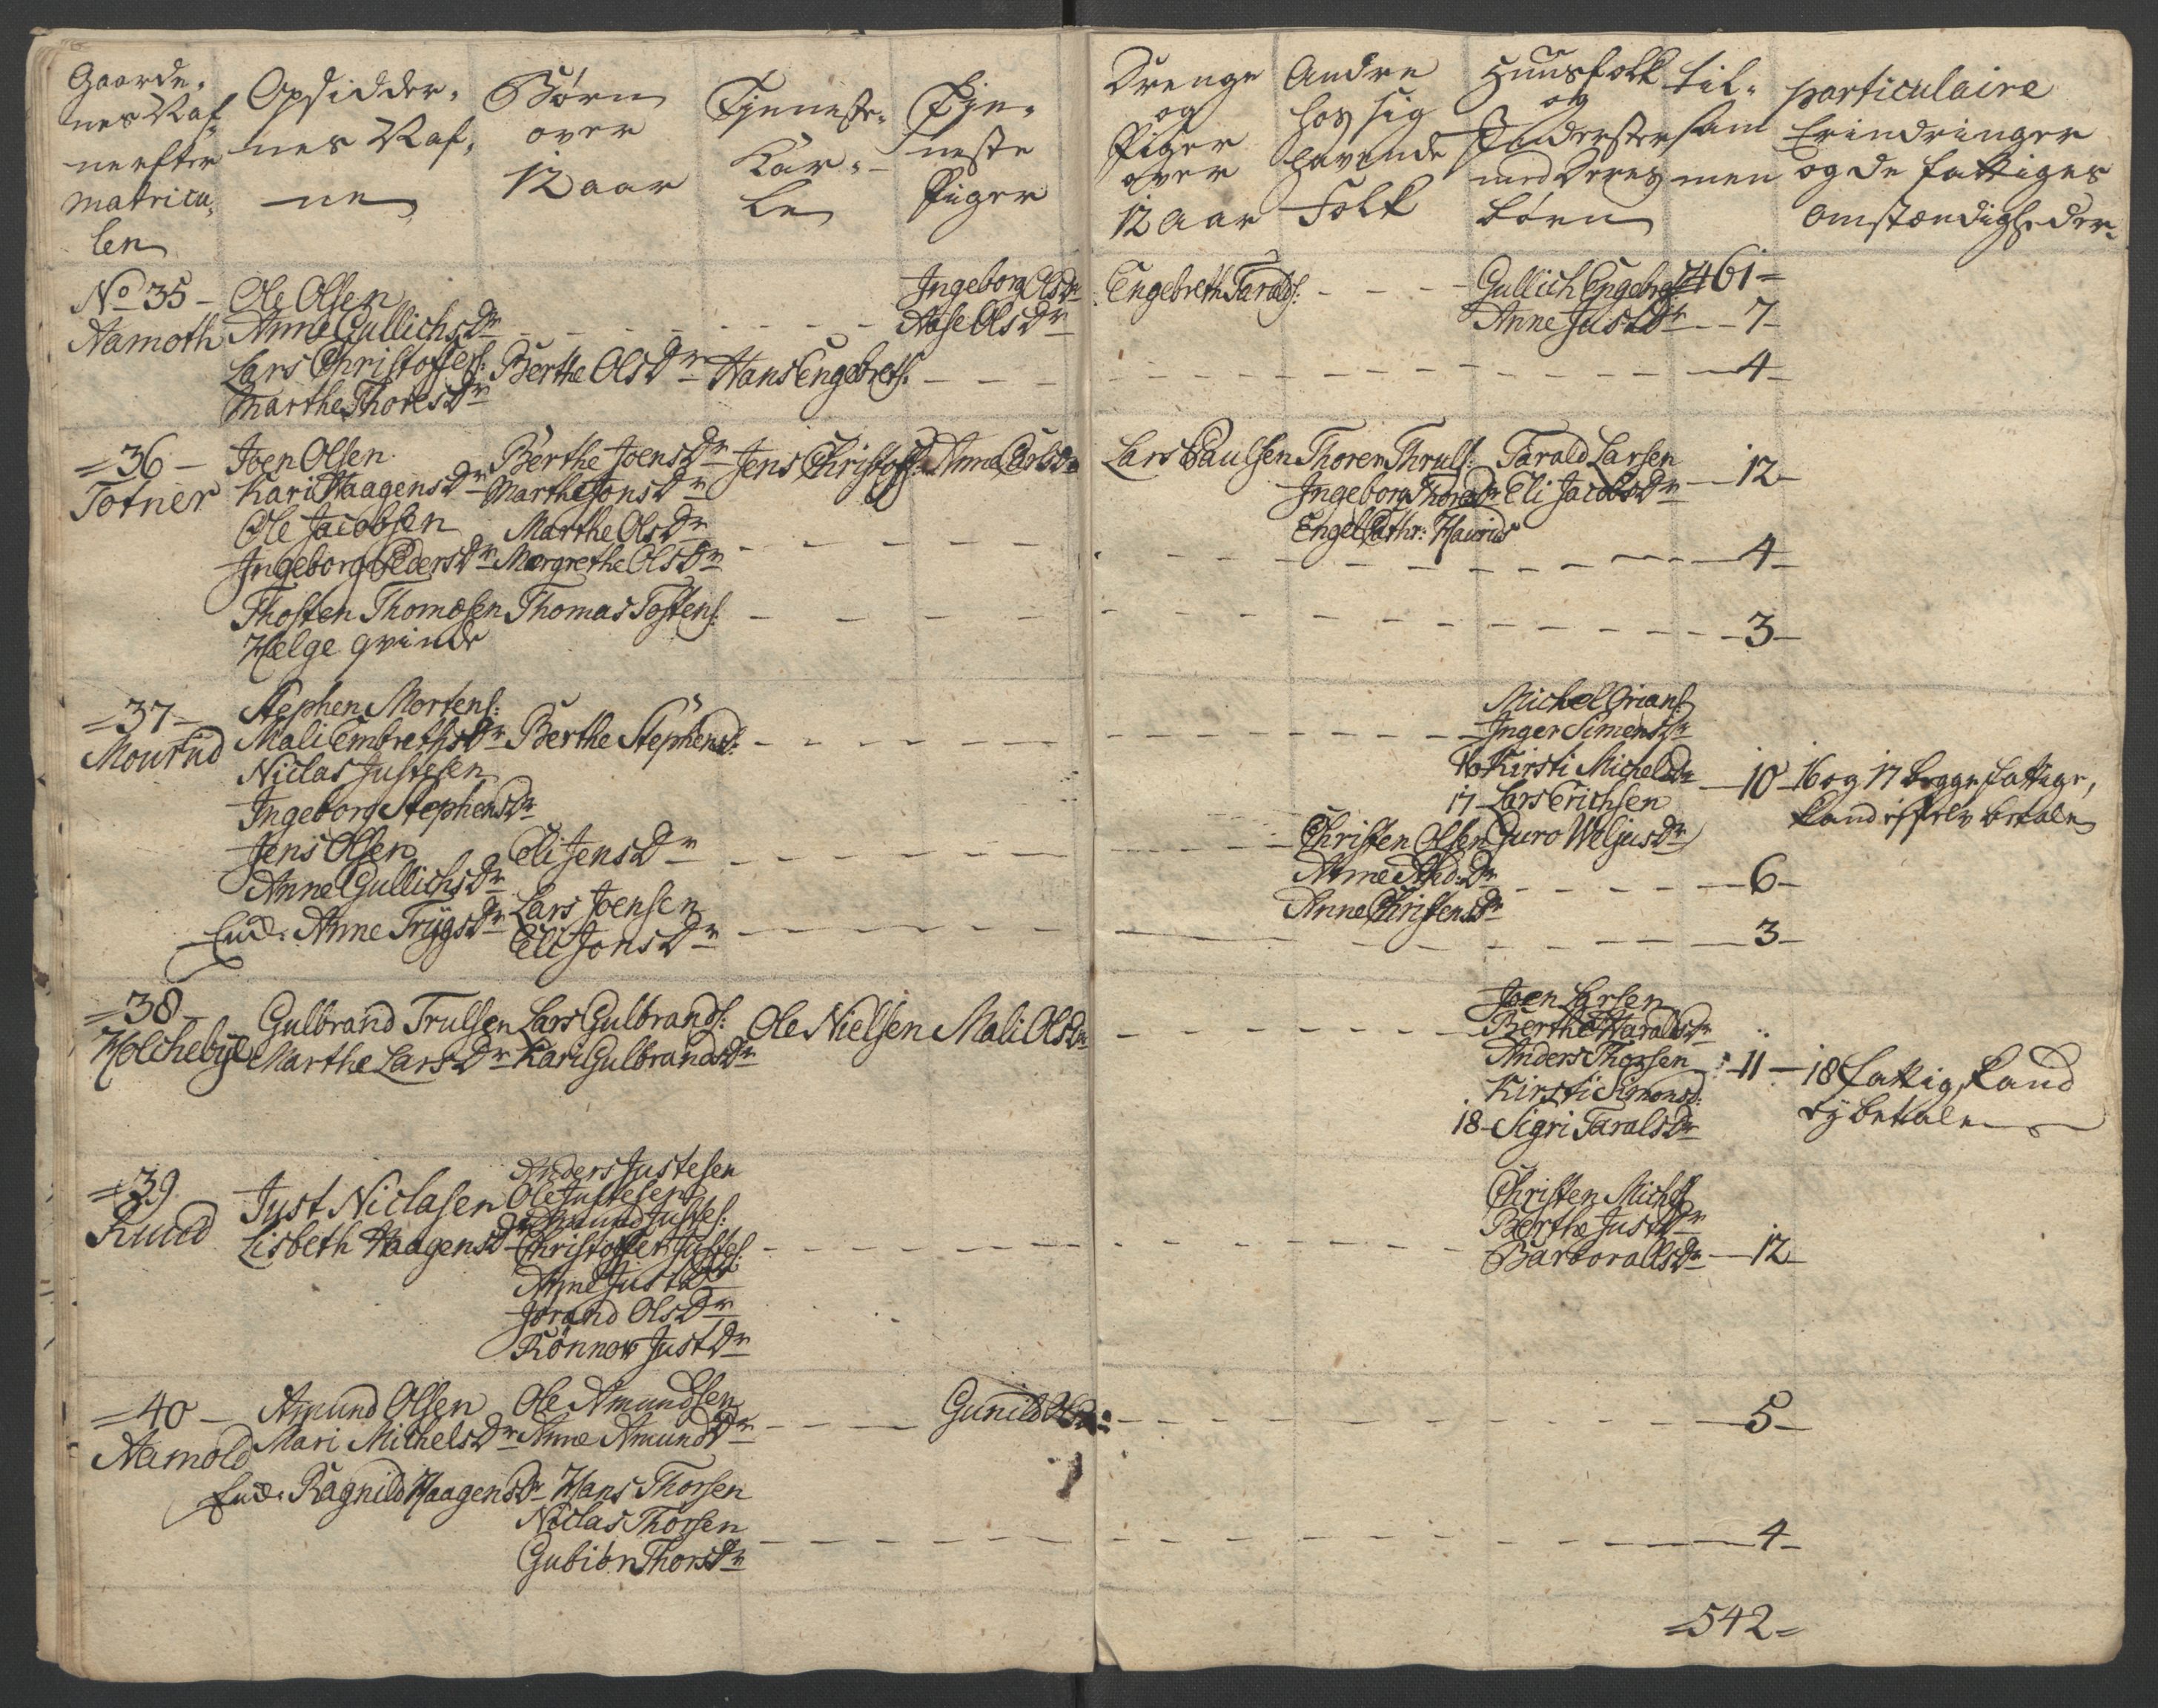 Gaarde-
nes Naf-
ne efter
Matricu-
len
Opsidder-
nes Naf-
ne
Børn
over
12 aar
Tjeneste-
Kar-
le
Tje-
neste
Piger
Drenge
og
Piger
over
12 Aar
Andre
hos sig
havende
Folk
Huusfolk
og
Inderster
med Deres
børn
til-
sam
men
particulaire
Erindringer
og de fattiges
Omstændigheder
No 35 -
Aamoth
Ole Olsen
Anne Gullichsdr
Lars Christoffers:
Marthe Thoresdr
Berthe Olsdr
Hans Engebrets:
Ingeborg Olsdr
Aase Olsdr
Engebreth Taralds:
Gullich
Anne Justdr
461 =
7
4
= 36 -
Totner
Joen Olsen
Kari Haagensdr
Ole Jacobsen
Ingeborg Pedersdr
Thosten Thomesen
Helge qvinde
Berthe Joensdr
Marthe Jonsdr
Marthe Olsdr
Mergrethe Olsdr
Thomas Tostens:
Jens Christoff:
Anne
Lars Paulsen
Thoren Thruls:
Ingeborg Thoresdr
Engel Cathr:
Tarald Larsen
Eli Jacobsdr
12
4
3
= 37 -
Mourud
Stephen Mortens:
Mali Embrethsdr
Niclas Justesen
Ingeborg Stephensdr
Jens Olsen
Anne Gullichsdr
Enck: Anne Trÿgsdr
Berthe Stephensd:
Eli Jensdr
Lars Joensen
Eli Jonsdr
Christen Olsen
Anne
Anne Christensdr
Michel
Inger Simensdr
16 Kirsti Michelsdr
17 Lars Erichsen
Guro
10
6
3
16 og 17 begge fattige,
kand iche betale
= 38 -
Holchebÿe
Gulbrand Trulsen
Marthe Larsdr
Lars Gulbrands:
Kari Gulbrandsdr
Ole Nielsen
Mali Olsdr
Joen Larsen
Berthe Haraldsdr
Anders Thorsen
Kirsti Simonsd:
18 - Sigri Taralsdr
11
18 fattig, kand
eÿ betale
= 39
Ruud
Just Niclasen
Lisbeth Haagensdr
Anders Justesen
Ole Justesen
Amund Justes:
Christoffer Justes:
Anne Justdr
Jørand Olsdr
Rønnow Justdr
Christen Michels:
Berthe Justdr
Barbora Olsdr
12
= 40 -
Aamold
Amund Olsen
Mari Michelsdr
Enck: Ragnild Haagensdr
Ole Amundsen
Anne Amundsdr
Hans Thorsen
Niclas Thorsen
Gubiør Thorsdr
Gunild
5
4
= 542 =